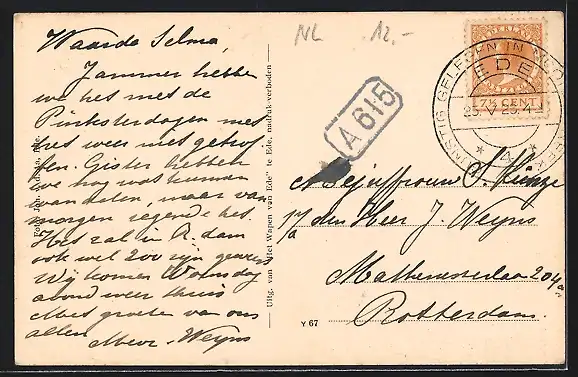 Waarde Selma,
Jammer hebben
we het met de
Pinksterdagen met
het weer niet getrof-
fen. Gister hebben
we nog wat kunnen
wandelen, maar van
morgen regende het.
Het zal in A.dam
ook wel zoo zijn geweest
Wij komen Woensdag
avond weer thuis
Met groete van ons
allen Mevr. Weyns
Uitg. van "Het Wapen van Ede" te Ede, nadruk verboden
NL 12.-
A 615
EDE
GUNSTIG GELEGEN IN
NEDERLAND
7½ CENT
Mejuffrouw S. Kinze
p/a den Heer J. Weyns
Mathenesserlaan 204a
Rotterdam.
Y 67